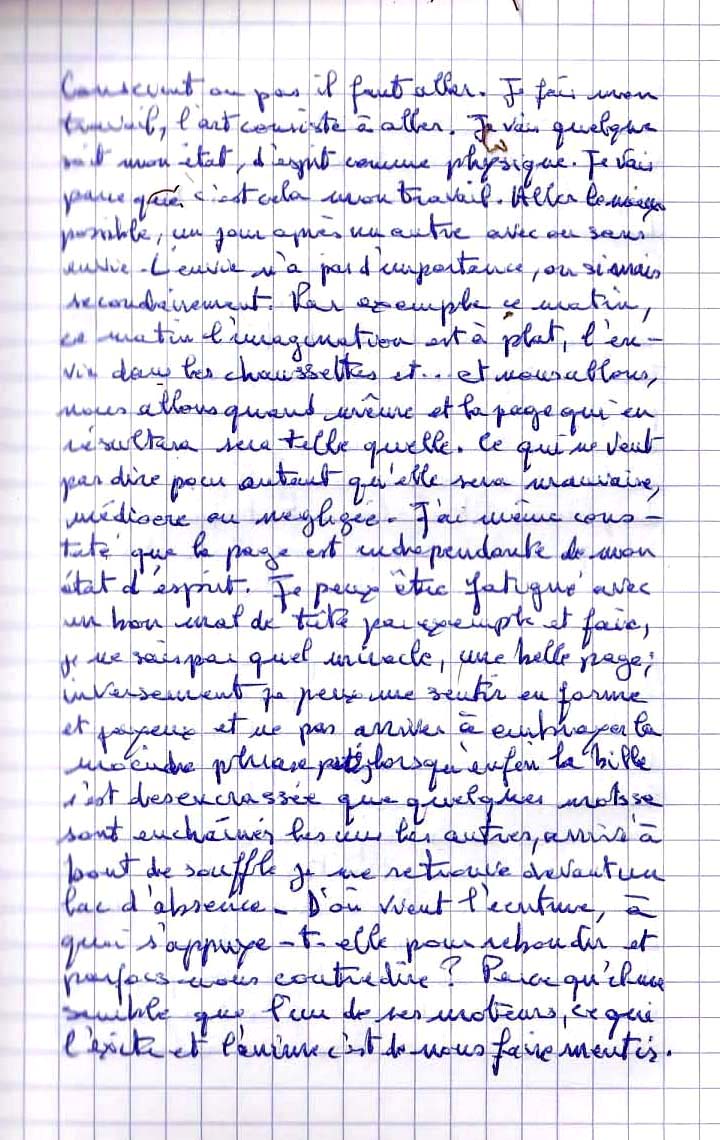 Conscient ou pas il faut aller. Je fais mon
travail, l'art consiste à aller. Je vais quelque
soit mon état, d'esprit comme physique. Je vais
parce que c'est cela mon travail. Aller le mieux
possible, un jour après un autre avec ou sans
envie. L'envie n'a pas d'importance, ou si mais
secondairement. Par exemple ce matin,
ce matin l'imagination est à plat, l'en-
vie dans les chaussettes et... et nous allons,
nous allons quand même et la page qui en
résultera sera telle quelle. Ce qui ne veut
pas dire pour autant qu'elle sera mauvaise,
médiocre ou negligée. J'ai même cons-
taté que la page est independante de mon
état d'esprit. Je peux être fatigué avec
un bon mal de tête par exemple et faire,
je ne sais par quel miracle, une belle page;
inversement je peux me sentir en forme
et joyeux et ne pas arriver à embrayer la
moindre phrase lorsqu'enfin la bille
s'est desencrassée que quelques mots se
sont enchaînés les uns les autres, arrivé à
bout de souffle je me retrouve devant un
lac d'absence. D'où vient l'ecriture, à
quoi s'appuye-t-elle pour rebondir et
parfois nous contredire? Parce qu'il me
semble que l'un de ses moteurs, ce qui
l'éxite et l'anime c'est de nous faire mentir.